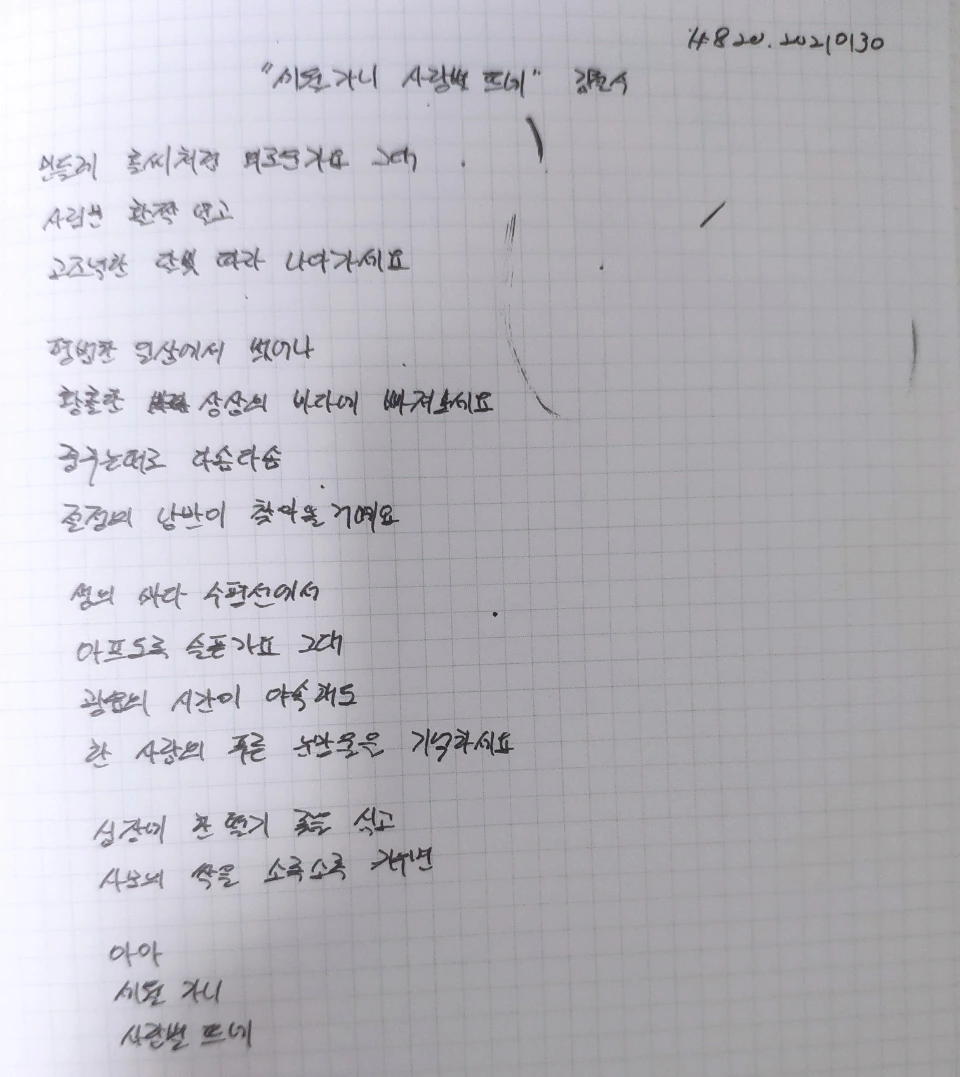 #820. 20210130
"세월 가니 사랑별 뜨네" 김
민들레 홀씨처럼 외로운가요 그대
사립문 활짝 열고
고즈넉한 달빛 따라 나아가세요
평범한 일상에서 벗어나
황홀한 상상의 바다에 빠져보세요
춤추는 파도 다솜다솜
절정의 낭만이 찾아올 거예요
생의 바다 수평선에서
아프도록 슬픈가요 그대
광음의 시간이 야속해도
한 사랑의 푸른 눈망울은 기억하세요
심장에 한 떨기 꽃을 심고
사모의 싹을 소록소록 키우면
아아
세월 가니
사랑별 뜨네